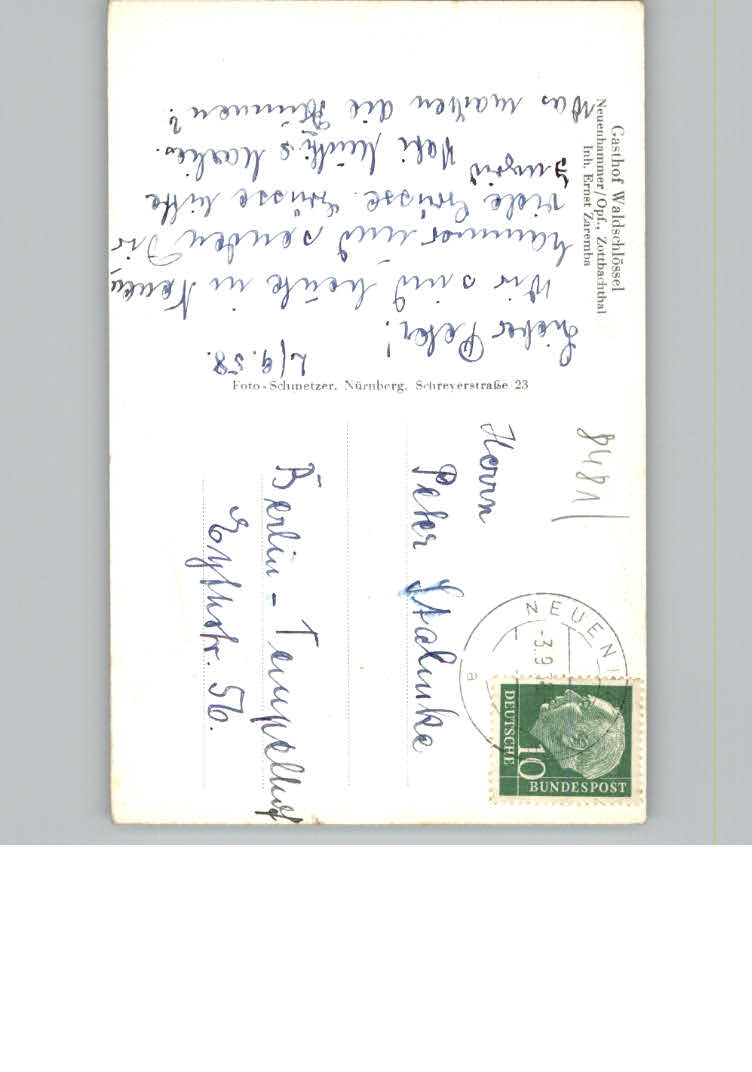 Gasthof Waldschlössel
Neuenhammer/Opf., Zottbachthal
Inh. Ernst Zaremba
2/9.58.
Lieber Peter!
Wir sind heute in Neuen
hammer und senden Dir
viele Grüsse. Grüsse bitte
Ingrid
Was machen die
Foto-Schmetzer, Nürnberg, Schreyerstraße 23
8481
Herrn
Peter
Berlin - Tempelhof
56.
NEUEN
-3.9.
a
DEUTSCHE
BUNDESPOST
10